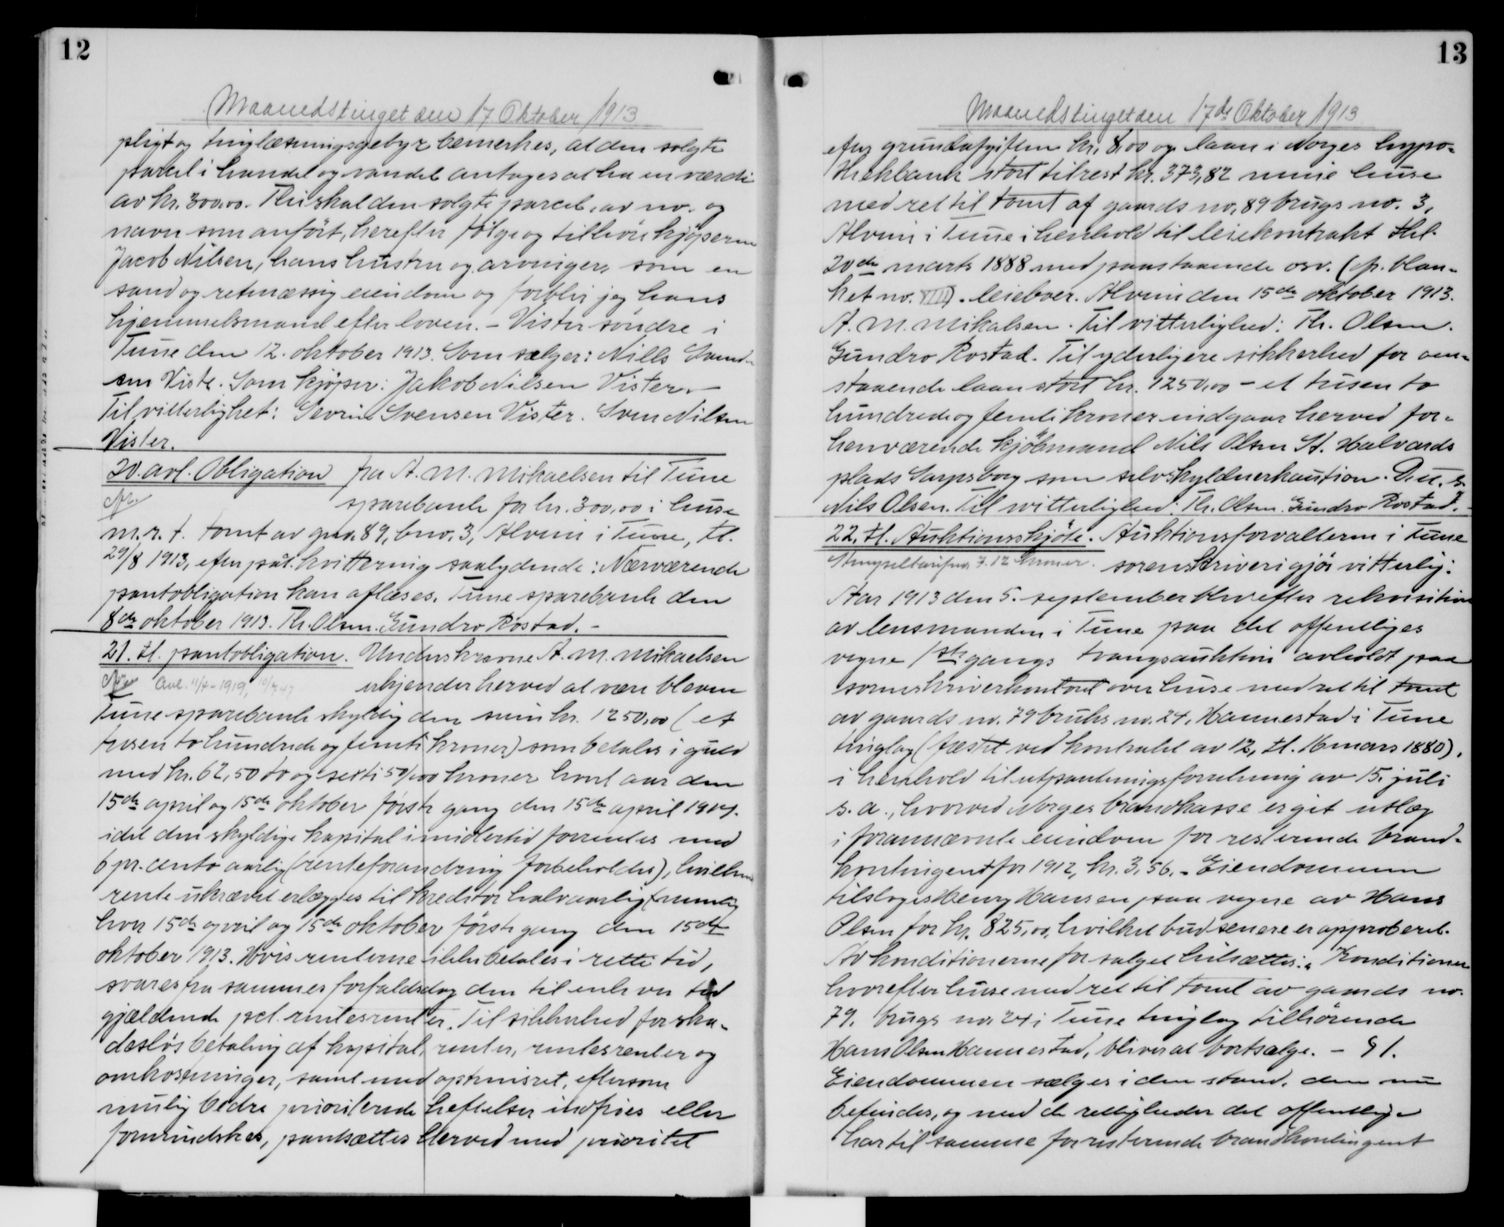 12
Maanedstinget den 17 Oktober 1913
pligt og tinglæsningsgebyr bemerkes, at den solgte
parcel i handel og vandel antages at ha en værdi
av kr. 300.00. Thi skal den solgte parcel, av no. og
navn som anført, herefter følge og tilhøre kjøperen
Jacob Nilsen, hans hustru og arvinger, som en
sand og retmæssig eiendom og forblir jeg hans
hjemmelsmand efter loven. – Vister søndre i
Tune den 12. oktober 1913. Som sælger: Nills Svend-
sen Viste. Som kjøper: Jakob Nilsen Vister. –
Til vitterlighet: Sevrin Svensen Vister. Sven Nilsen
Vister.
20. avl. Obligation fra A. M. Mikaelsen til Tune
sparebank for kr. 300,00 i huse
m. r. t. tomt av gno. 89, bno. 3, Alvim i Tune, tl.
29/8 1913, efter påt. kvittering saalydende: Nærværende
pantobligation kan aflæses. Tune sparebank den
8de oktober 1913. Th. Olsen. Gundro Rostad. –
21. tl. pantobligation. Underskrevne A. M. Mikaelsen
Avl. 11/4-1919, erkjender herved at være bleven
Tune sparebank skyldig den sum kr. 1250,00 (et
tusen to hundrede og femti kroner) som betales i guld
med kr. 62,50 to og sexti 50/100 kroner hvert aar den
15de april og 15de oktober første gang den 15de april 1914.
idet den skyldige kapital imidlertid forrentes med
6 pr. cento aarlig (renteforandring forbeholdes), hvilken
rente ukrævet erlægges til kreditor halvaarlig (nemlig
hver 15de april og 15de oktober første gang den 15de
oktober 1913. Hvis renterne ikke betales i rette tid,
svares fra sammes forfaldsdag den til enhver tid
gjældende pct. rentesrenter. Til sikkerhed for ska-
desløs betaling af kapital, renter, rentesrenter og
omkostninger, samt med oprinsret, eftersom
mulig bedre prioriterede heftelser indfries eller
formindskes, pantsættes herved med prioritet
13
Maanedstinget den 17de Oktober 1913
efter grundafgiften kr. 8,00 og laan i Norges hypo-
thekbank stort tilrest kr. 373,82 mine huse
med ret til tomt af gaards no. 89 brugs no. 3,
Alvim i Tune i henhold til leiekontrakt thl.
20de marts 1888 med paastaaende osv. (cfr. blan-
ket no. VIII). leieboer. Alvim den 15de oktober 1913.
A. M. Mikalsen. Til vitterlighed: Th. Olsen.
Gundro Rostad. Til yderligere sikkerhed for oen-
staaende laan stort kr. 1250,00 – et tusen to
hundrede og femti kroner indgaar herved for-
henværende kjøbmand Nils Olsen St. Halvards
plads Sarpsborg som selvskyldnerkaution. D. u. s.
Nils Olsen. Til vitterlighed: Th. Olsen. Gundro Rostad. –
22. tl. Auktionsskjøte. Auktionsforvalteren i Tune
Stempeltarif no. 7. 12 kroner. sorenskriveri gjør vitterlig:
Aar 1913 den 5. september blev efter rekvisition
av lensmanden i Tune paa det offentliges
vegne 1ste gangs tvangsauktion avholdt paa
sorenskriverkontoret over huse med ret til tomt
av gaards no. 79 bruks no. 24, Hannestad i Tune
tinglag (fæstet ved kontrakt av 12, tl. 16 mars 1880).
i henhold til utpantningsforretning av 15. juli
s. a., hvorved Norges brandkasse er git utlæg
i forannævnte eiendom for resterende brand-
kontingent for 1912, kr. 3,56. – Eiendommen
tilsloges Henry Hansen paa vegne av Hans
Olsen for kr. 825,00, hvilket bud senere er approberet.
Av konditionerne for salget hitsættes: „Konditioner
hvorefter huse med ret til tomt av gaards no.
79. brugs no. 24 i Tune tinglag tilhørende
Hans Olsen Hannestad, bliver at bortsælge. – § 1.
Eiendommen sælges i den stand, den nu
befindes, og med de rettigheder det offentlige
har til samme for resterende brandkontingent